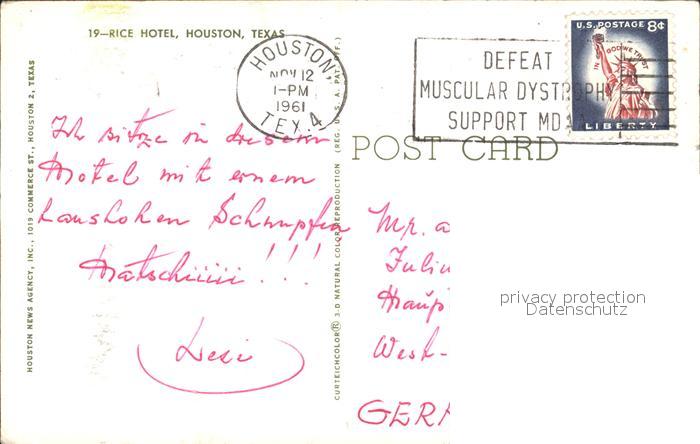 19—RICE HOTEL, HOUSTON, TEXAS
HOUSTON NEWS AGENCY, INC., 1019 COMMERCE ST., HOUSTON 2, TEXAS
Ich sitze in diesem
Hotel mit einem
haushohen Schnupfen
Hatschiiiii!!!
CURTEICHCOLOR® 3-D NATURAL COLOR REPRODUCTION (REG. U. S. A. PAT. OFF.)
HOUSTON,
NOV 12
1-PM
1961
TEX. 4
DEFEAT
MUSCULAR DYSTROPHY
SUPPORT MD
U.S. POSTAGE 8¢
IN GOD WE TRUST
LIBERTY
POST CARD
Mr. a
Juliu
Haup
West-
GER
privacy protection
Datenschutz